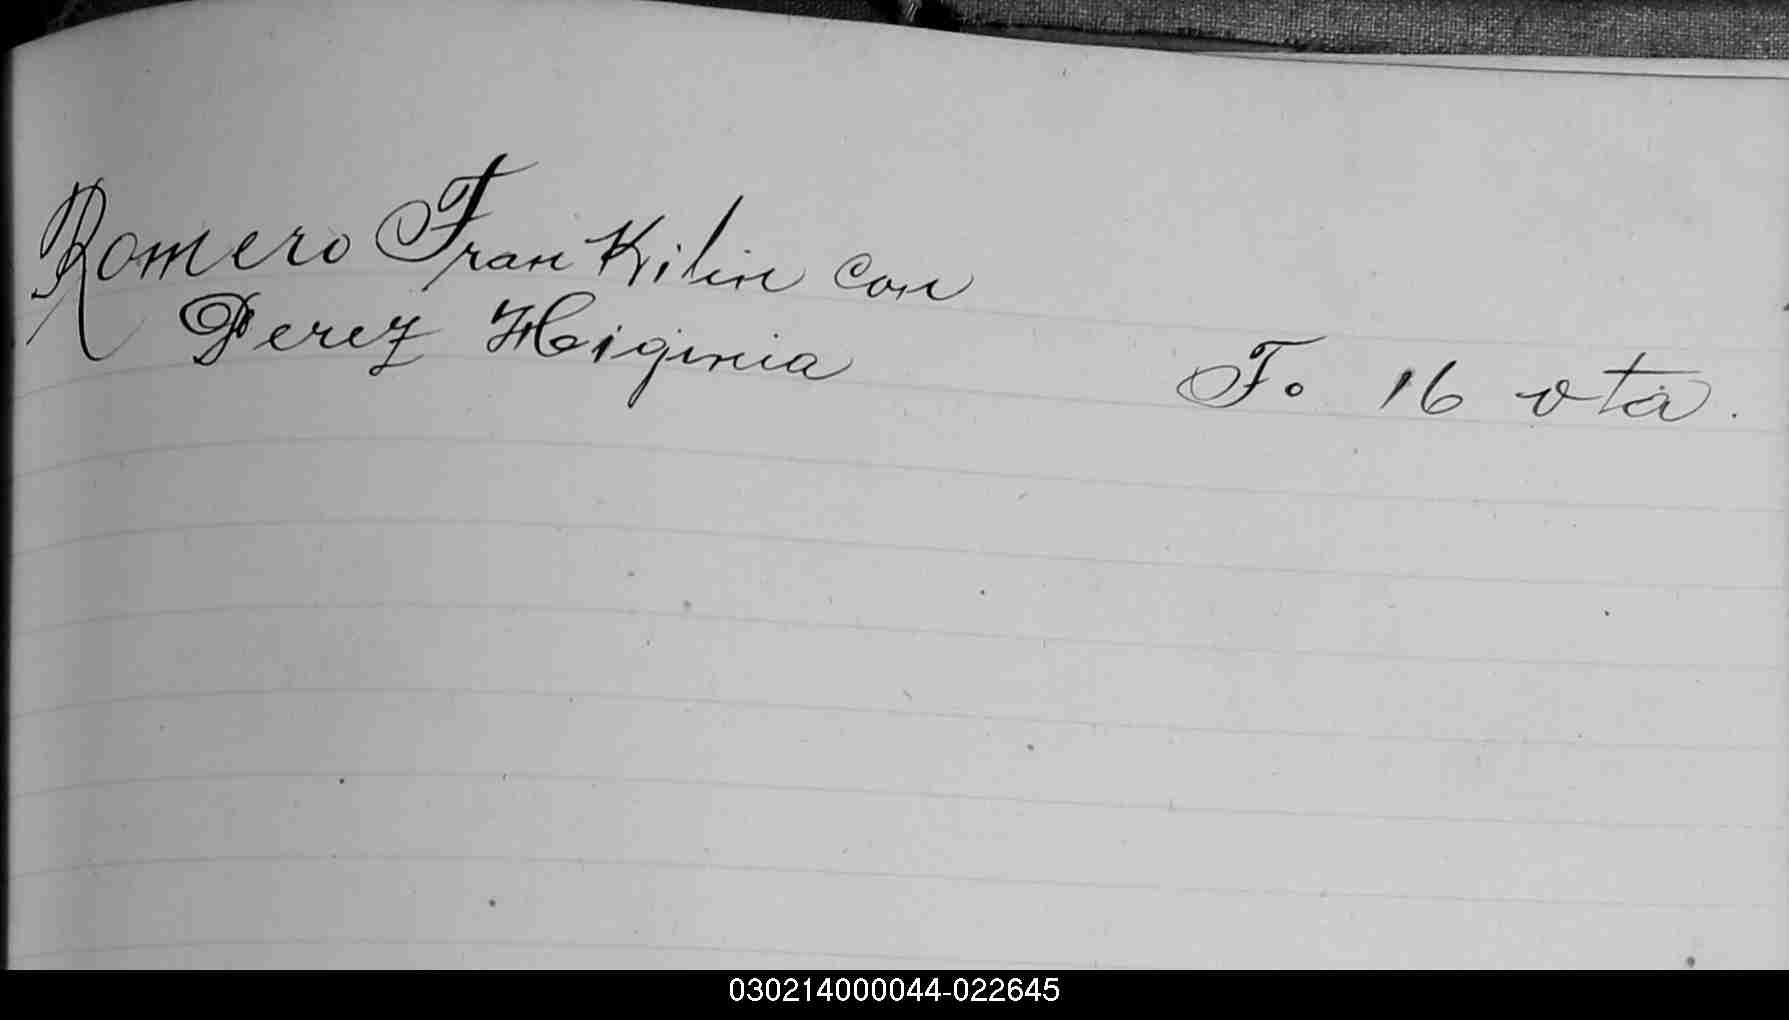 Romero Frankilin con
Perez Higinia Fo 16 vta.
030214000044-022645